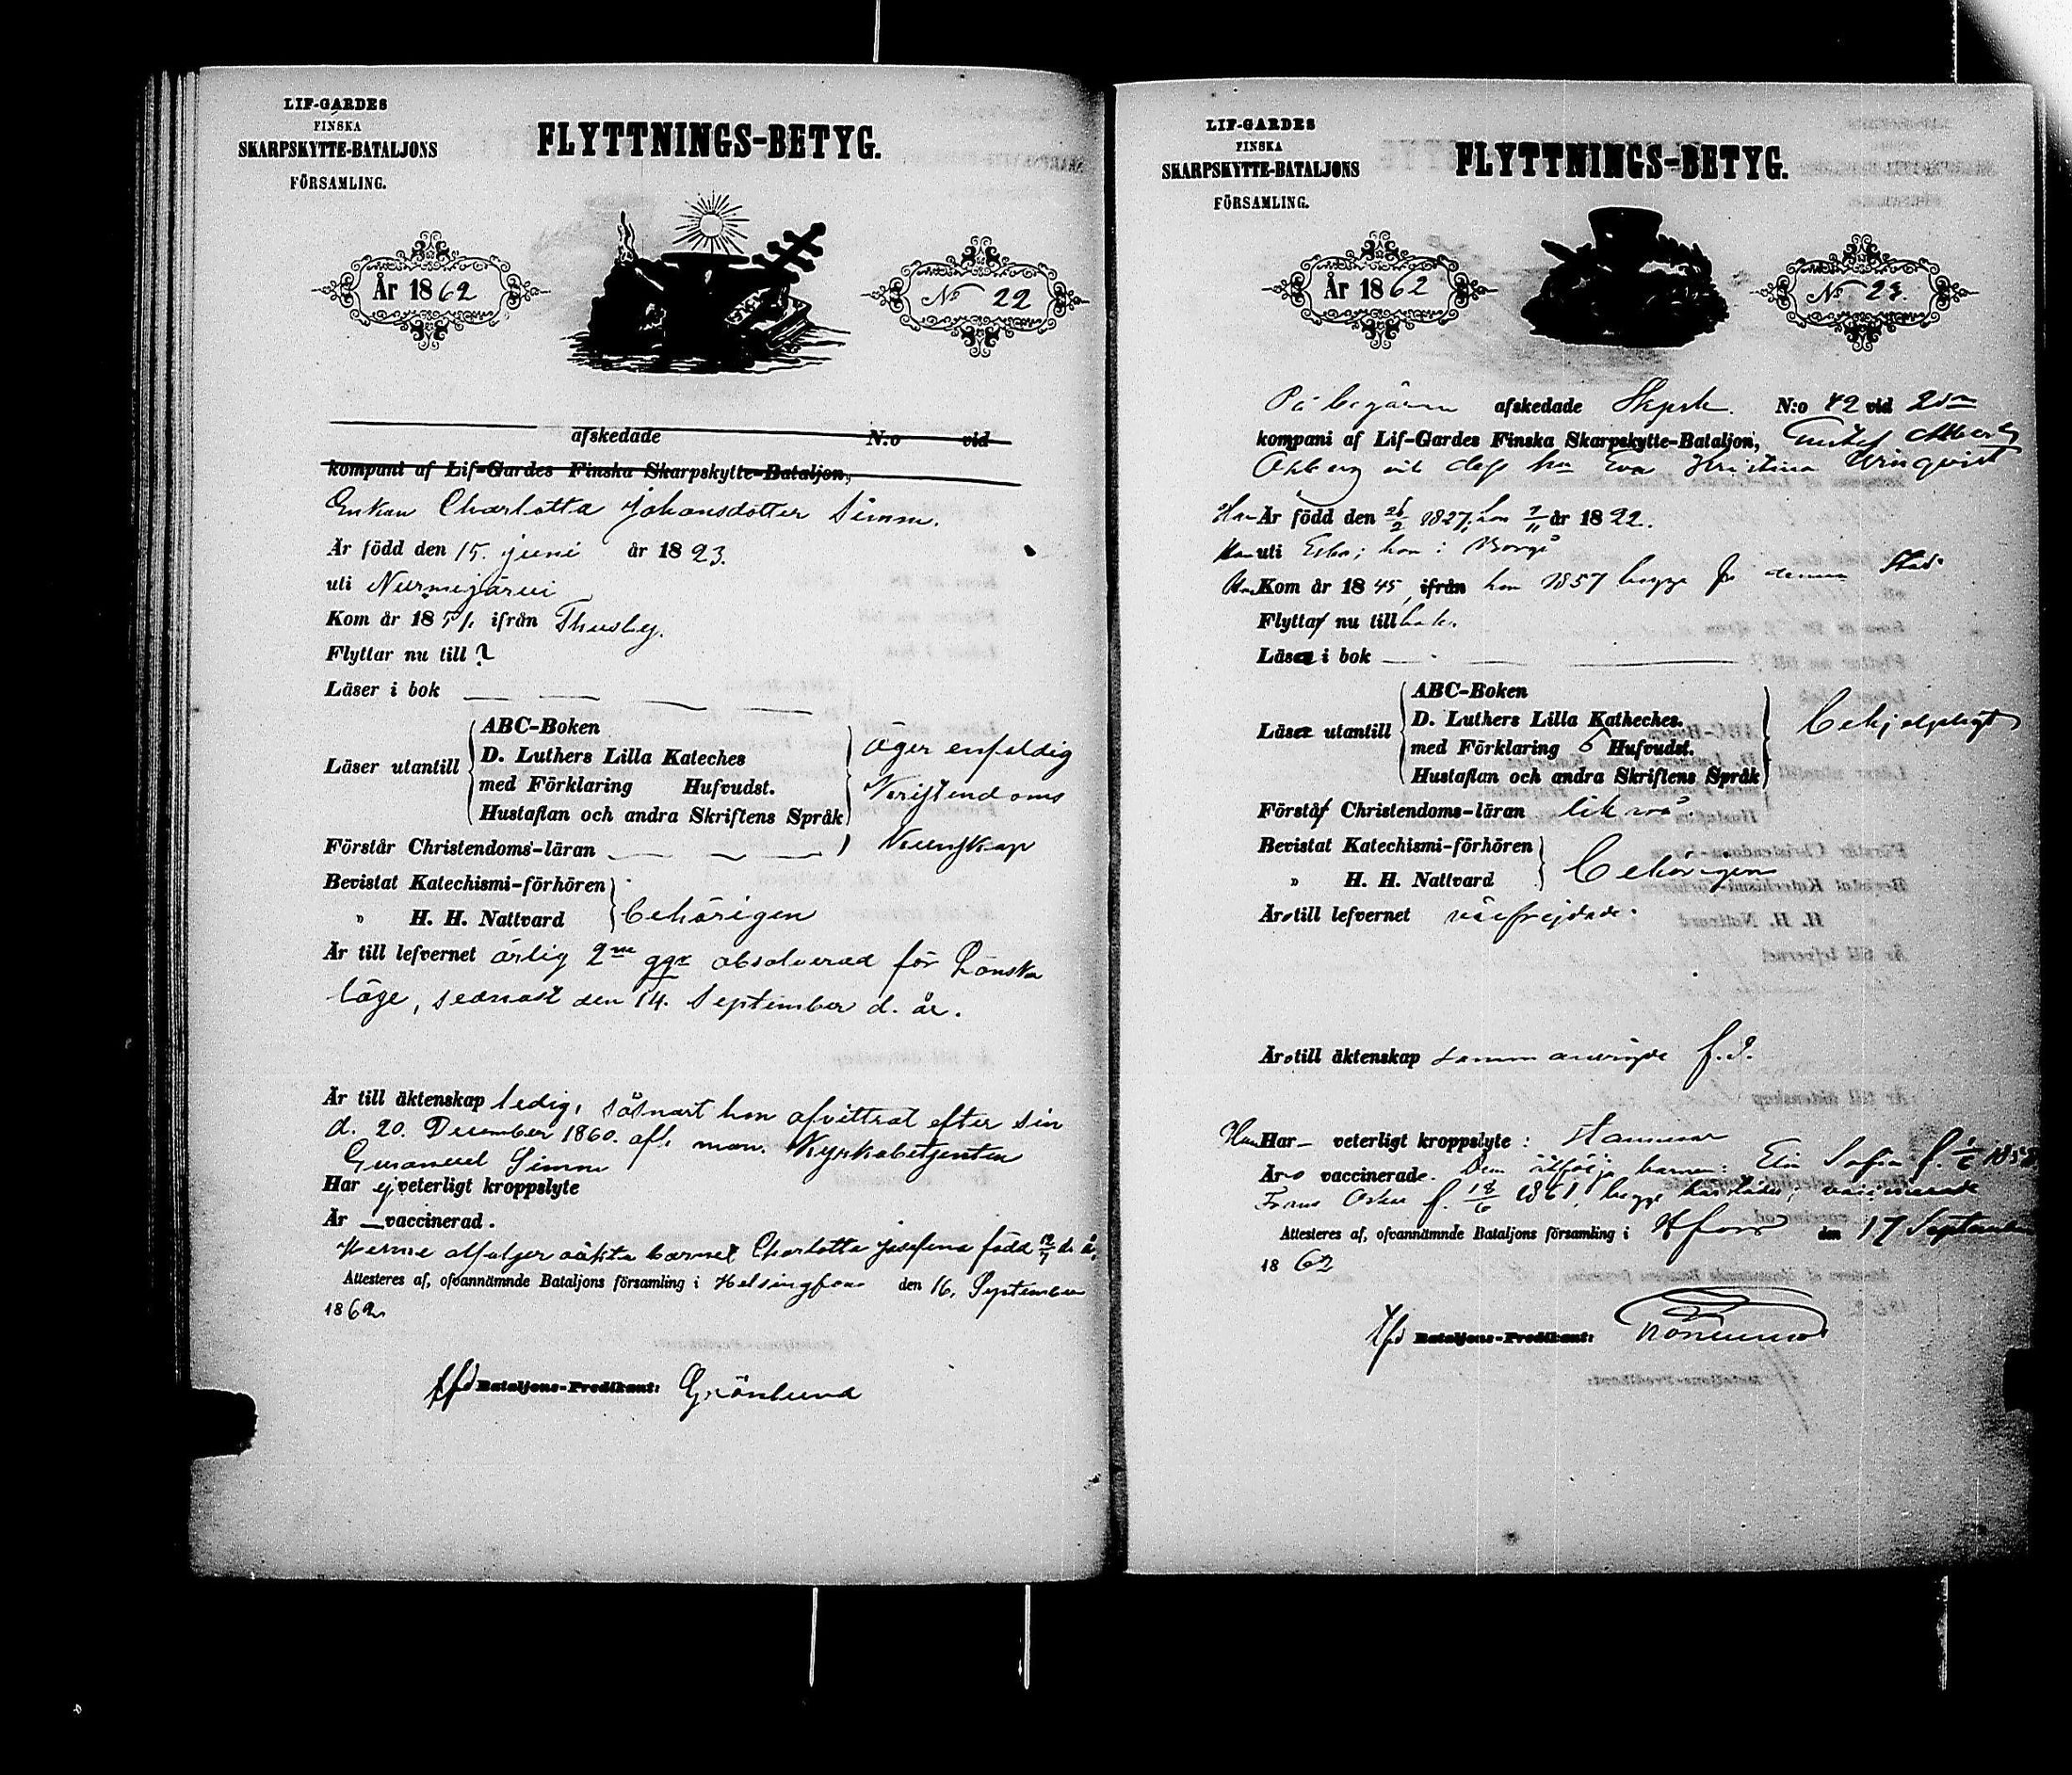 LIF-GARDES
FINSKA
SKARPSKYTTE-BATALJONS
FÖRSAMLING.
FLYTTNINGS-BETYG.
År 1862
No 22
afskedade N:o vid
kompani af Lif-Gardes Finska Skarpskytte-Bataljon,
Enkan Charlotta Johansdotter Simm.
Är född den 15. juni år 1823.
uti Nurmijärvi
Kom år 1851. ifrån Thusby.
Flyttar nu till ?
Läser i bok
Läser utantill
ABC-Boken
D. Luthers Lilla Kateches
med Förklaring Hufvudst.
Hustaflan och andra Skriftens Språk
äger enfaldig
Kristendoms
Kunskap
Förstår Christendoms-läran
Bevistat Katechismi-förhören
" H. H. Nattvard
behörigen
Är till lefvernet ärlig 2ne ggr absolverad för Lönska
läge, sednast den 14. September d. år.
Är till äktenskap ledig, såsnart hon afvittrat efter sin
d. 20. December 1860. afl. man. Kyrkobetjenten
Emanuel Simm
Har ej veterligt kroppslyte
Är vaccinerad.
Henne åtföljer oäkta barnet Charlotta Josefina född 12/7 d. å.
Attesteres af, ofvannämnde Bataljons församling i Helsingfors den 16. September
1862
Bataljons-Predikant: Grönlund
LIF-GARDES
FINSKA
SKARPSKYTTE-BATALJONS
FÖRSAMLING.
FLYTTNINGS-BETYG.
År 1862
No 23.
På begäran afskedade Skpsk. N:o 42 vid 2dra
kompani af Lif-Gardes Finska Skarpskytte-Bataljon, Gustaf Albert
och dess hu Eva Kristina
Han Är född den 26/2 1827, hon 7/11 år 1822.
Han uti Esbo; hon i Borgå
Han Kom år 1845, ifrån hon 1857 begge fr denna Stad.
Flytta nu tillbaka.
Läsa i bok
Läsa utantill
ABC-Boken
D. Luthers Lilla Katheches.
med Förklaring 5 Hufvudst.
Hustaflan och andra Skriftens Språk
behjelpligt
Förstå Christendoms-läran likaså
Bevistat Katechismi-förhören
" H. H. Nattvard
behörigen
Äro till lefvernet välfrejdade.
Äro till äktenskap sammanvigde f.d.
Han Har veterligt kroppslyte: stammar
Äro vaccinerade. Dem åtfölja barnen: Sofia f. 1/6 1858
Frans Oskar f. 18/6 1861, begge vaccinerade
Attesteres af, ofvannämnde Bataljons församling i Hfors den 17 September
1862
Bataljons-Predikant: